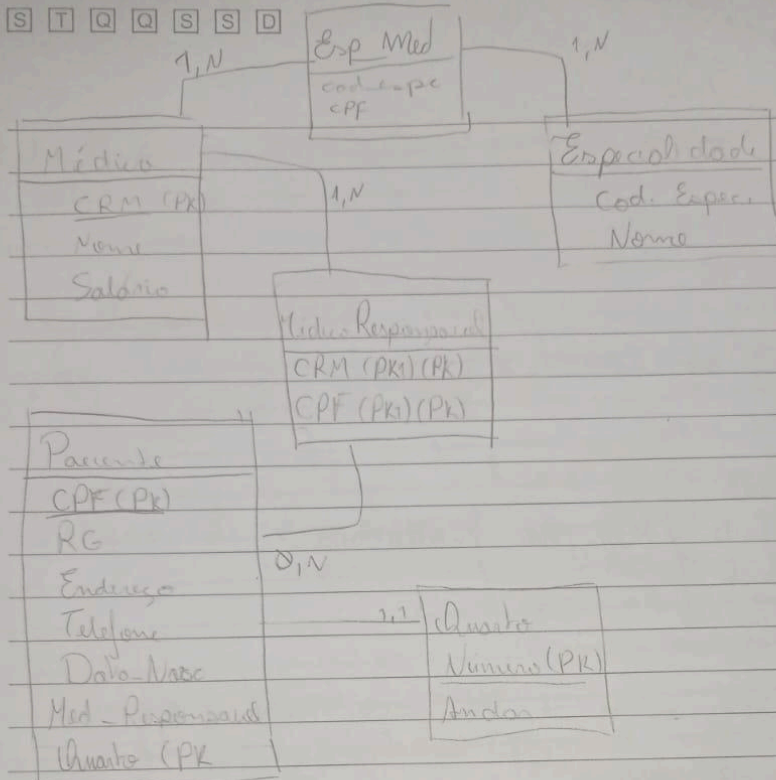 S T Q Q S S D
Esp_Med
cod_espe
CPF
1,N
1,N
Médico
CRM (PK)
Nome
Salário
1,N
Especialidade
Cod. Espec.
Nome
Médico Responsavel
CRM (PK1)(PK)
CPF (PK1)(PK)
Paciente
CPF (PK)
RG
Endereço
Telefone
Data-Nasc
Med_Responsavel
Quarto (PK
0,N
1,1
Quarto
Número (PK)
Andar